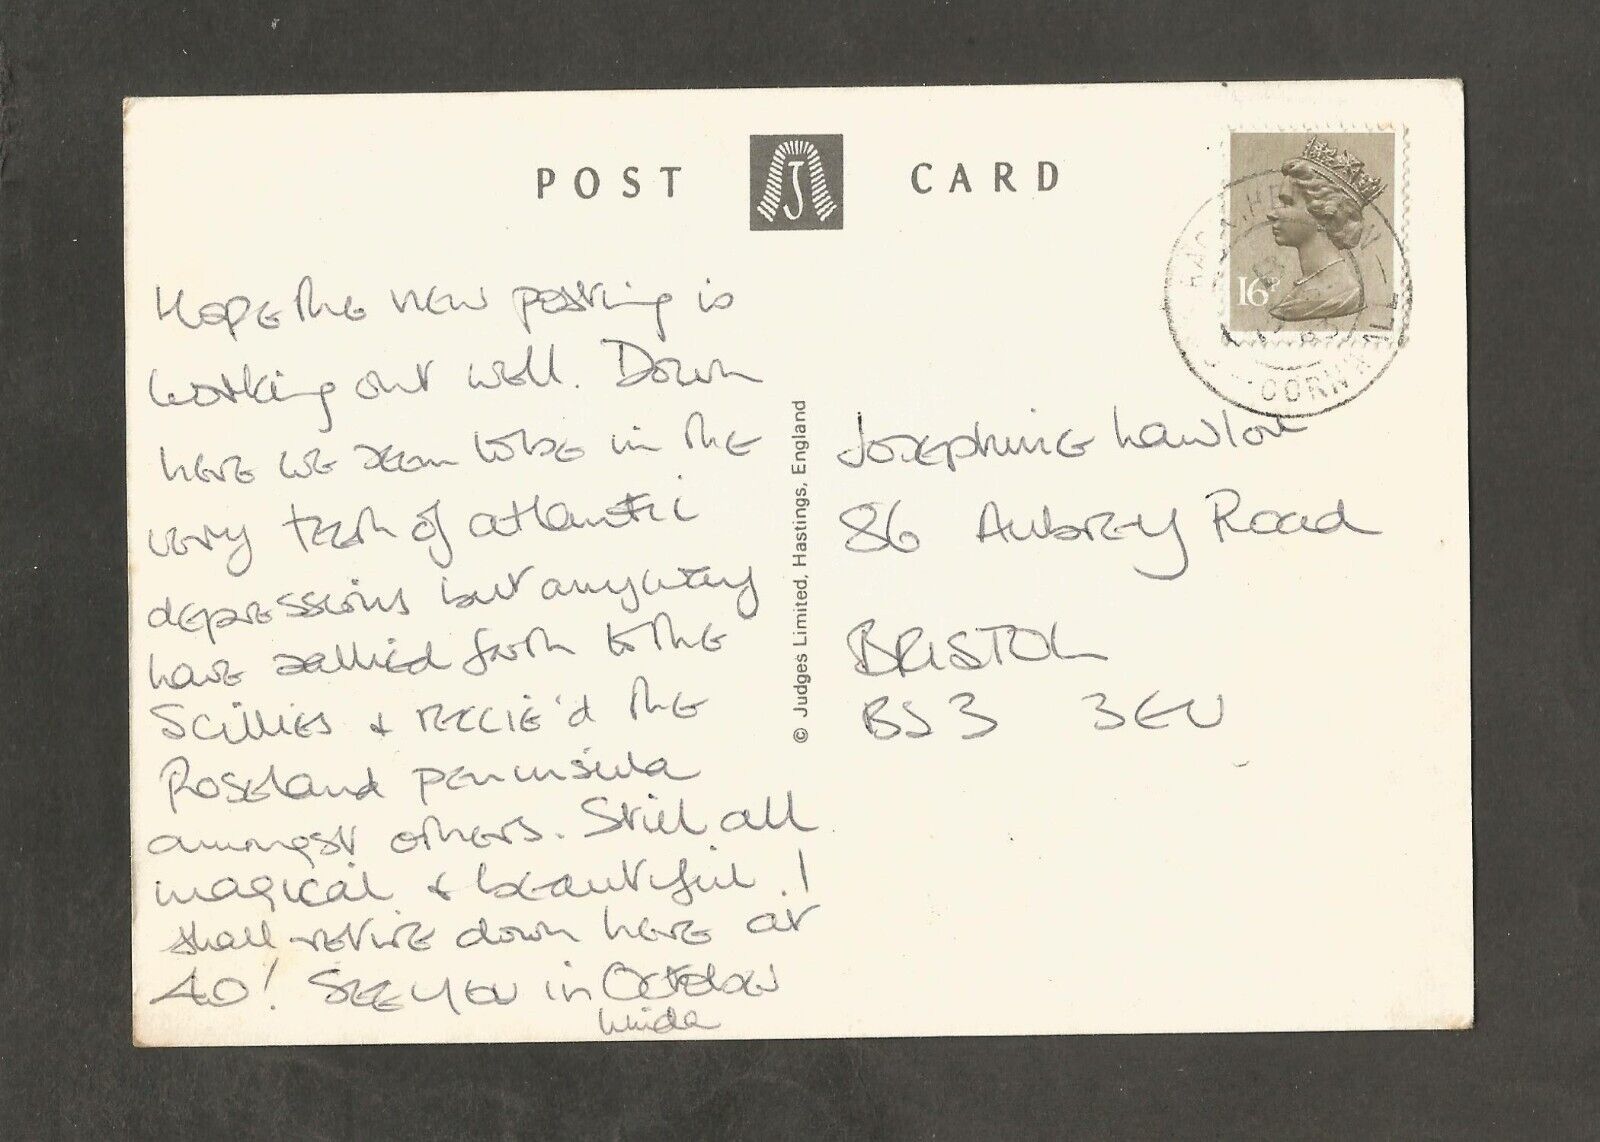 POST CARD
J
16P
CORNWALL
Hope the new posting is
working out well. Down
here we seem to be in the
very teeth of atlantic
depressions but anyway
have sallied forth to the
Scillies & reccie'd the
Roseland peninsula
amongst others. Still all
magical & beautiful. I
shall retire down here at
40! See you in October
Linda
© Judges Limited, Hastings, England
Josephine Lawlor
86 Aubrey Road
BRISTOL
BS3 3EU